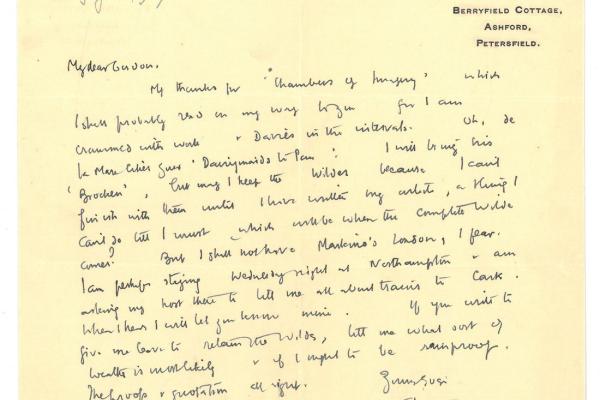 BERRYFIELD COTTAGE,
ASHFORD,
PETERSFIELD.
My dear Gordon.
My thanks for "Chambers of Imagery" which
I shall probably read on my way to you for I am
crammed with work & Davies in the intervals. Oh, de
la Mare likes your 'Dairymaids to Pan'. I will bring his
'Brochen', but may I keep the Wildes because I can't
finish with them until I have written my article, a thing I
can't do till I must which will be when the complete Wilde
comes? But I shall not have Markino's London, I fear.
I am perhaps staying Wednesday night at Northampton & am
asking my host there to tell me all about trains to Cark.
When I hear I will let you know mine. If you write to
give me leave to retain the Wildes, tell me what sort of
weather is most likely & if I ought to be rainproof.
The proofs & quotation all right.
Yours ever